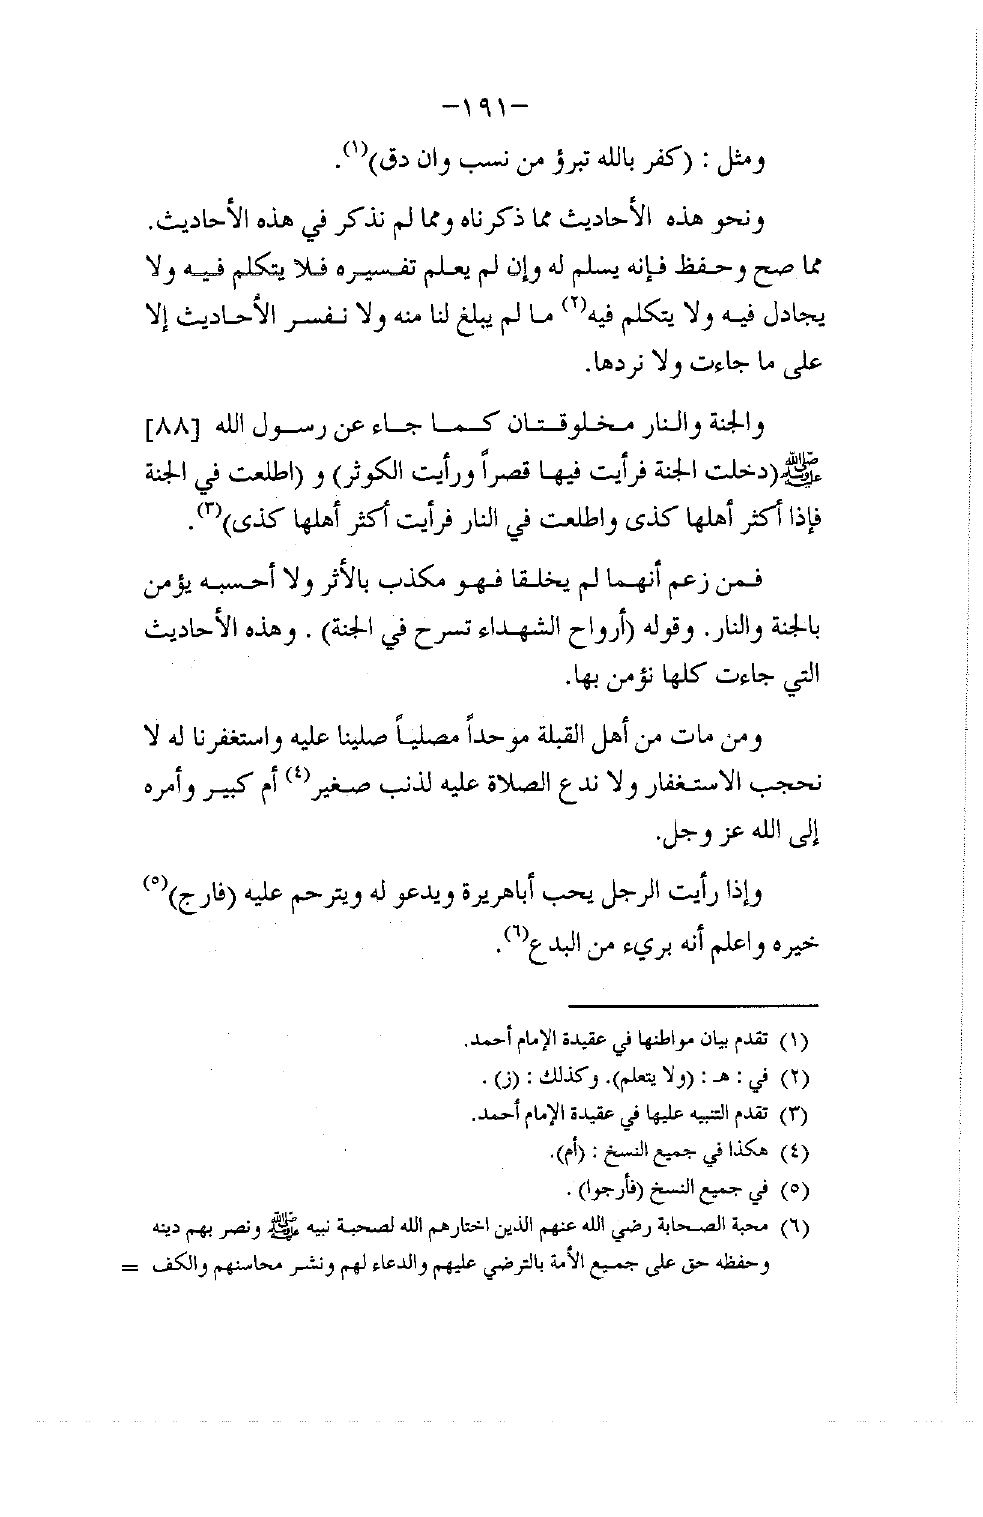 -١٩١-
ومثل : (كفر بالله تبرؤ من نسب وان دق)(١).
ونحو هذه الأحاديث مما ذكرناه ومما لم نذكر في هذه الأحاديث.
مما صح وحفظ فإنه يسلم له وإن لم يعلم تفسيره فلا يتكلم فيه ولا
يجادل فيه ولا يتكلم فيه(٢) ما لم يبلغ لنا منه ولا نفسر الأحاديث إلا
على ما جاءت ولا نردها.
والجنة والنار مخلوقتان كما جاء عن رسول الله [٨٨]
ﷺ(دخلت الجنة فرأيت فيها قصراً ورأيت الكوثر) و (اطلعت في الجنة
فإذا أكثر أهلها كذى واطلعت في النار فرأيت أكثر أهلها كذى)(٣).
فمن زعم أنهما لم يخلقا فهو مكذب بالأثر ولا أحسبه يؤمن
بالجنة والنار. وقوله (أرواح الشهداء تسرح في الجنة) . وهذه الأحاديث
التي جاءت كلها نؤمن بها.
ومن مات من أهل القبلة موحداً مصلياً صلينا عليه واستغفرنا له لا
نحجب الاستغفار ولا ندع الصلاة عليه لذنب صغير(٤) أم كبير وأمره
إلى الله عز وجل.
وإذا رأيت الرجل يحب أباهريرة ويدعو له ويترحم عليه (فارج)(٥)
خيره واعلم أنه بريء من البدع(٦).
(١) تقدم بيان مواطنها في عقيدة الإمام أحمد.
(٢) في : هـ : (ولا يتعلم). وكذلك : (ز) .
(٣) تقدم التنبيه عليها في عقيدة الإمام أحمد.
(٤) هكذا في جميع النسخ : (أم).
(٥) في جميع النسخ (فأرجوا) .
(٦) محبة الصحابة رضي الله عنهم الذين اختارهم الله لصحبة نبيه ﷺ ونصر بهم دينه
وحفظه حق على جميع الأمة بالترضي عليهم والدعاء لهم ونشر محاسنهم والكف =